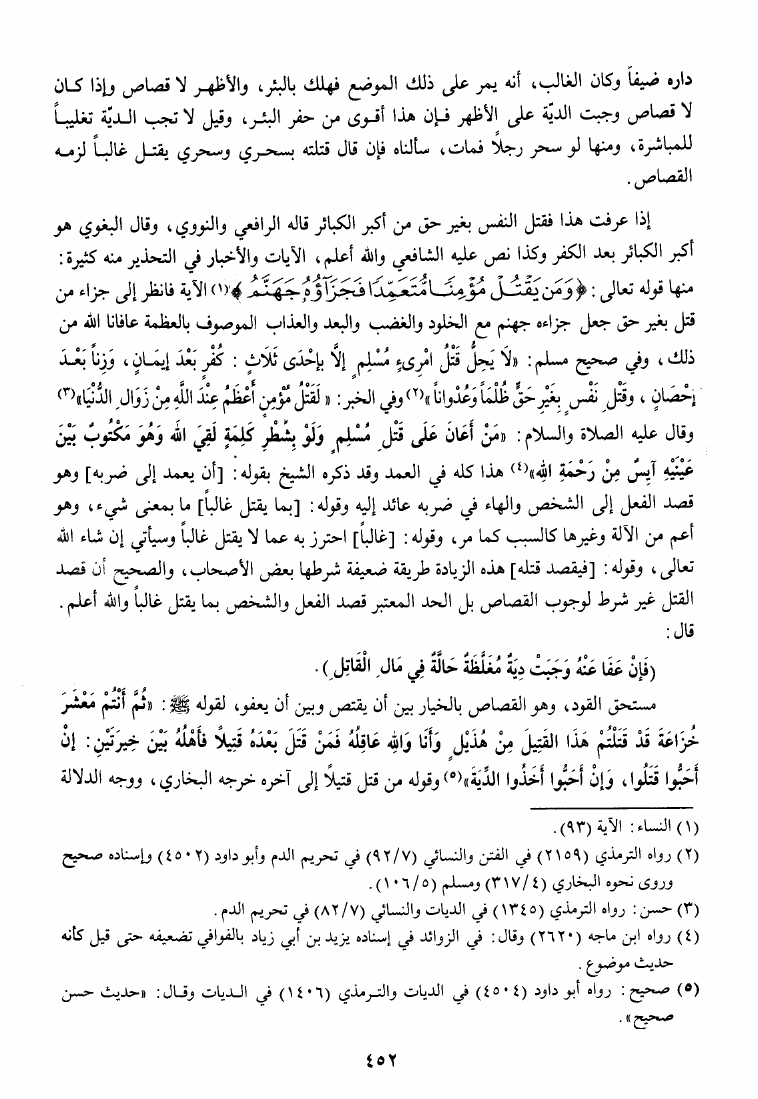 داره ضيفاً وكان الغالب، أنه يمر على ذلك الموضع فهلك بالبئر، والأظهر لا قصاص وإذا كان
لا قصاص وجبت الديّة على الأظهر فإن هذا أقوى من حفر البئر، وقيل لا تجب الديّة تغليباً
للمباشرة، ومنها لو سحر رجلاً فمات، سألناه فإن قال قتلته بسحري وسحري يقتل غالباً لزمه
القصاص.
إذا عرفت هذا فقتل النفس بغير حق من أكبر الكبائر قاله الرافعي والنووي، وقال البغوي هو
أكبر الكبائر بعد الكفر وكذا نص عليه الشافعي والله أعلم، الآيات والأخبار في التحذير منه كثيرة:
منها قوله تعالى: ﴿وَمَن يَقْتُلْ مُؤْمِنًا مُّتَعَمِّدًا فَجَزَآؤُهُ جَهَنَّمُ﴾(١) الآية فانظر إلى جزاء من
قتل بغير حق جعل جزاءه جهنم مع الخلود والغضب والبعد والعذاب الموصوف بالعظمة عافانا الله من
ذلك، وفي صحيح مسلم: «لَا يَحِلُّ قَتْلُ امْرِىءٍ مُسْلِمٍ إلَّا بِإحْدَى ثَلَاثٍ: كُفْرٍ بَعْدَ إيمَانٍ، وَزِناً بَعْدَ
إحْصَانٍ، وَقَتْلِ نَفْسٍ بِغَيْرِ حَقٍّ ظُلْمَاً وَعُدْوَاناً»(٢) وفي الخبر: «لَقَتْلُ مُؤْمِنٍ أَعْظَمُ عِنْدَ اللَّهِ مِنْ زَوَالِ الدُّنْيَا»(٣)
وقال عليه الصلاة والسلام: «مَنْ أَعَانَ عَلَى قَتْلِ مُسْلِمٍ وَلَوْ بِشَطْرِ كَلِمَةٍ لَقِيَ اللهَ وَهُوَ مَكْتُوبٌ بَيْنَ
عَيْنَيْهِ آيِسٌ مِنْ رَحْمَةِ اللهِ»(٤) هذا كله في العمد وقد ذكره الشيخ بقوله: [أن يعمد إلى ضربه] وهو
قصد الفعل إلى الشخص والهاء في ضربه عائد إليه وقوله: [بما يقتل غالباً] ما بمعنى شيء، وهو
أعم من الآلة وغيرها كالسبب كما مر، وقوله: [غالباً] احترز به عما لا يقتل غالباً وسيأتي إن شاء الله
تعالى، وقوله: [فيقصد قتله] هذه الزيادة طريقة ضعيفة شرطها بعض الأصحاب، والصحيح أن قصد
القتل غير شرط لوجوب القصاص بل الحد المعتبر قصد الفعل والشخص بما يقتل غالباً والله أعلم.
قال:
(فَإنْ عَفَا عَنْهُ وَجَبَتْ دِيَةٌ مُغَلَّظَةٌ حَالَّةٌ فِي مَالِ الْقَاتِلِ).
مستحق القود، وهو القصاص بالخيار بين أن يقتص وبين أن يعفو، لقوله ﷺ: «ثُمَّ أَنْتُمْ مَعْشَرَ
خُزَاعَةَ قَدْ قَتَلْتُمْ هَذَا القَتِيلَ مِنْ هُذَيْلٍ وَأَنَا وَاللهِ عَاقِلُهُ فَمَنْ قَتَلَ بَعْدَهُ قَتِيلاً فَأهْلُهُ بَيْنَ خِيرَتَيْنِ: إنْ
أَحَبُّوا قَتَلُوا، وَإنْ أَحَبُّوا أَخَذُوا الدِّيَةَ»(٥) وقوله من قتل قتيلاً إلى آخره خرجه البخاري، ووجه الدلالة
(١) النساء: الآية (٩٣).
(٢) رواه الترمذي (٢١٥٩) في الفتن والنسائي (٩٢/٧) في تحريم الدم وأبو داود (٤٥٠٢) وإسناده صحيح
وروى نحوه البخاري (٣١٧/٤) ومسلم (١٠٦/٥).
(٣) حسن: رواه الترمذي (١٣٤٥) في الديات والنسائي (٨٢/٧) في تحريم الدم.
(٤) رواه ابن ماجه (٢٦٢٠) وقال: في الزوائد في إسناده يزيد بن أبي زياد بالفوافي تضعيفه حتى قيل كأنه
حديث موضوع.
(٥) صحيح: رواه أبو داود (٤٥٠٤) في الديات والترمذي (١٤٠٦) في الديات وقال: «حديث حسن
صحيح».
٤٥٢